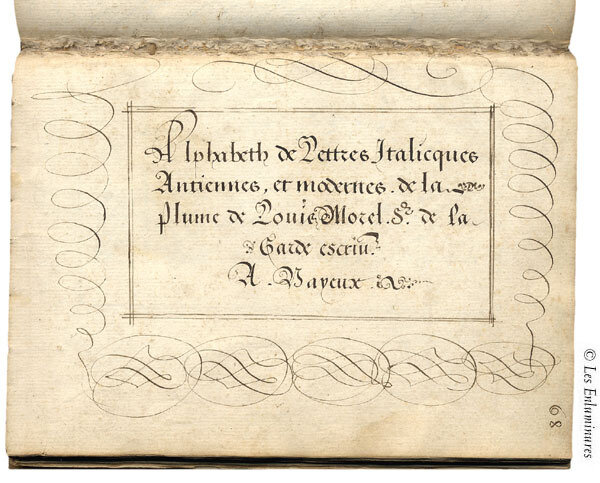 Alphabeth de Lettres Italicques
Antiennes, et modernes. de la
plume de Louis Morel. Sr. de la
Garde escriu.
A. Bayeux.
89
© Les Enluminures